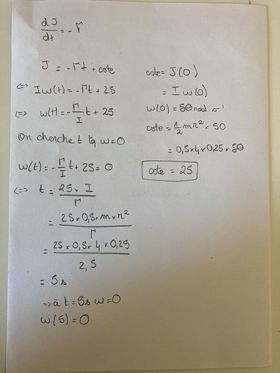 dJ/dt = - Γ
J = - Γt + cste
⇔ Iω(t) = - Γt + 25
⇔ ω(t) = - Γ/I t + 25
On cherche t tq ω=0
ω(t) = - Γ/I t + 25 = 0
⇔ t = 25 × I / Γ
= 25 × 0,5 × m × r² / Γ
= 25 × 0,5 × 4 × 0,25 / 2,5
= 5s
⇒ à t = 5s ω=0
ω(5) = 0
cste = J(0)
= I ω(0)
ω(0) = 50 rad.s⁻¹
cste = 1/2 mr² × 50
= 0,5 × 4 × 0,25 × 50
cste = 25